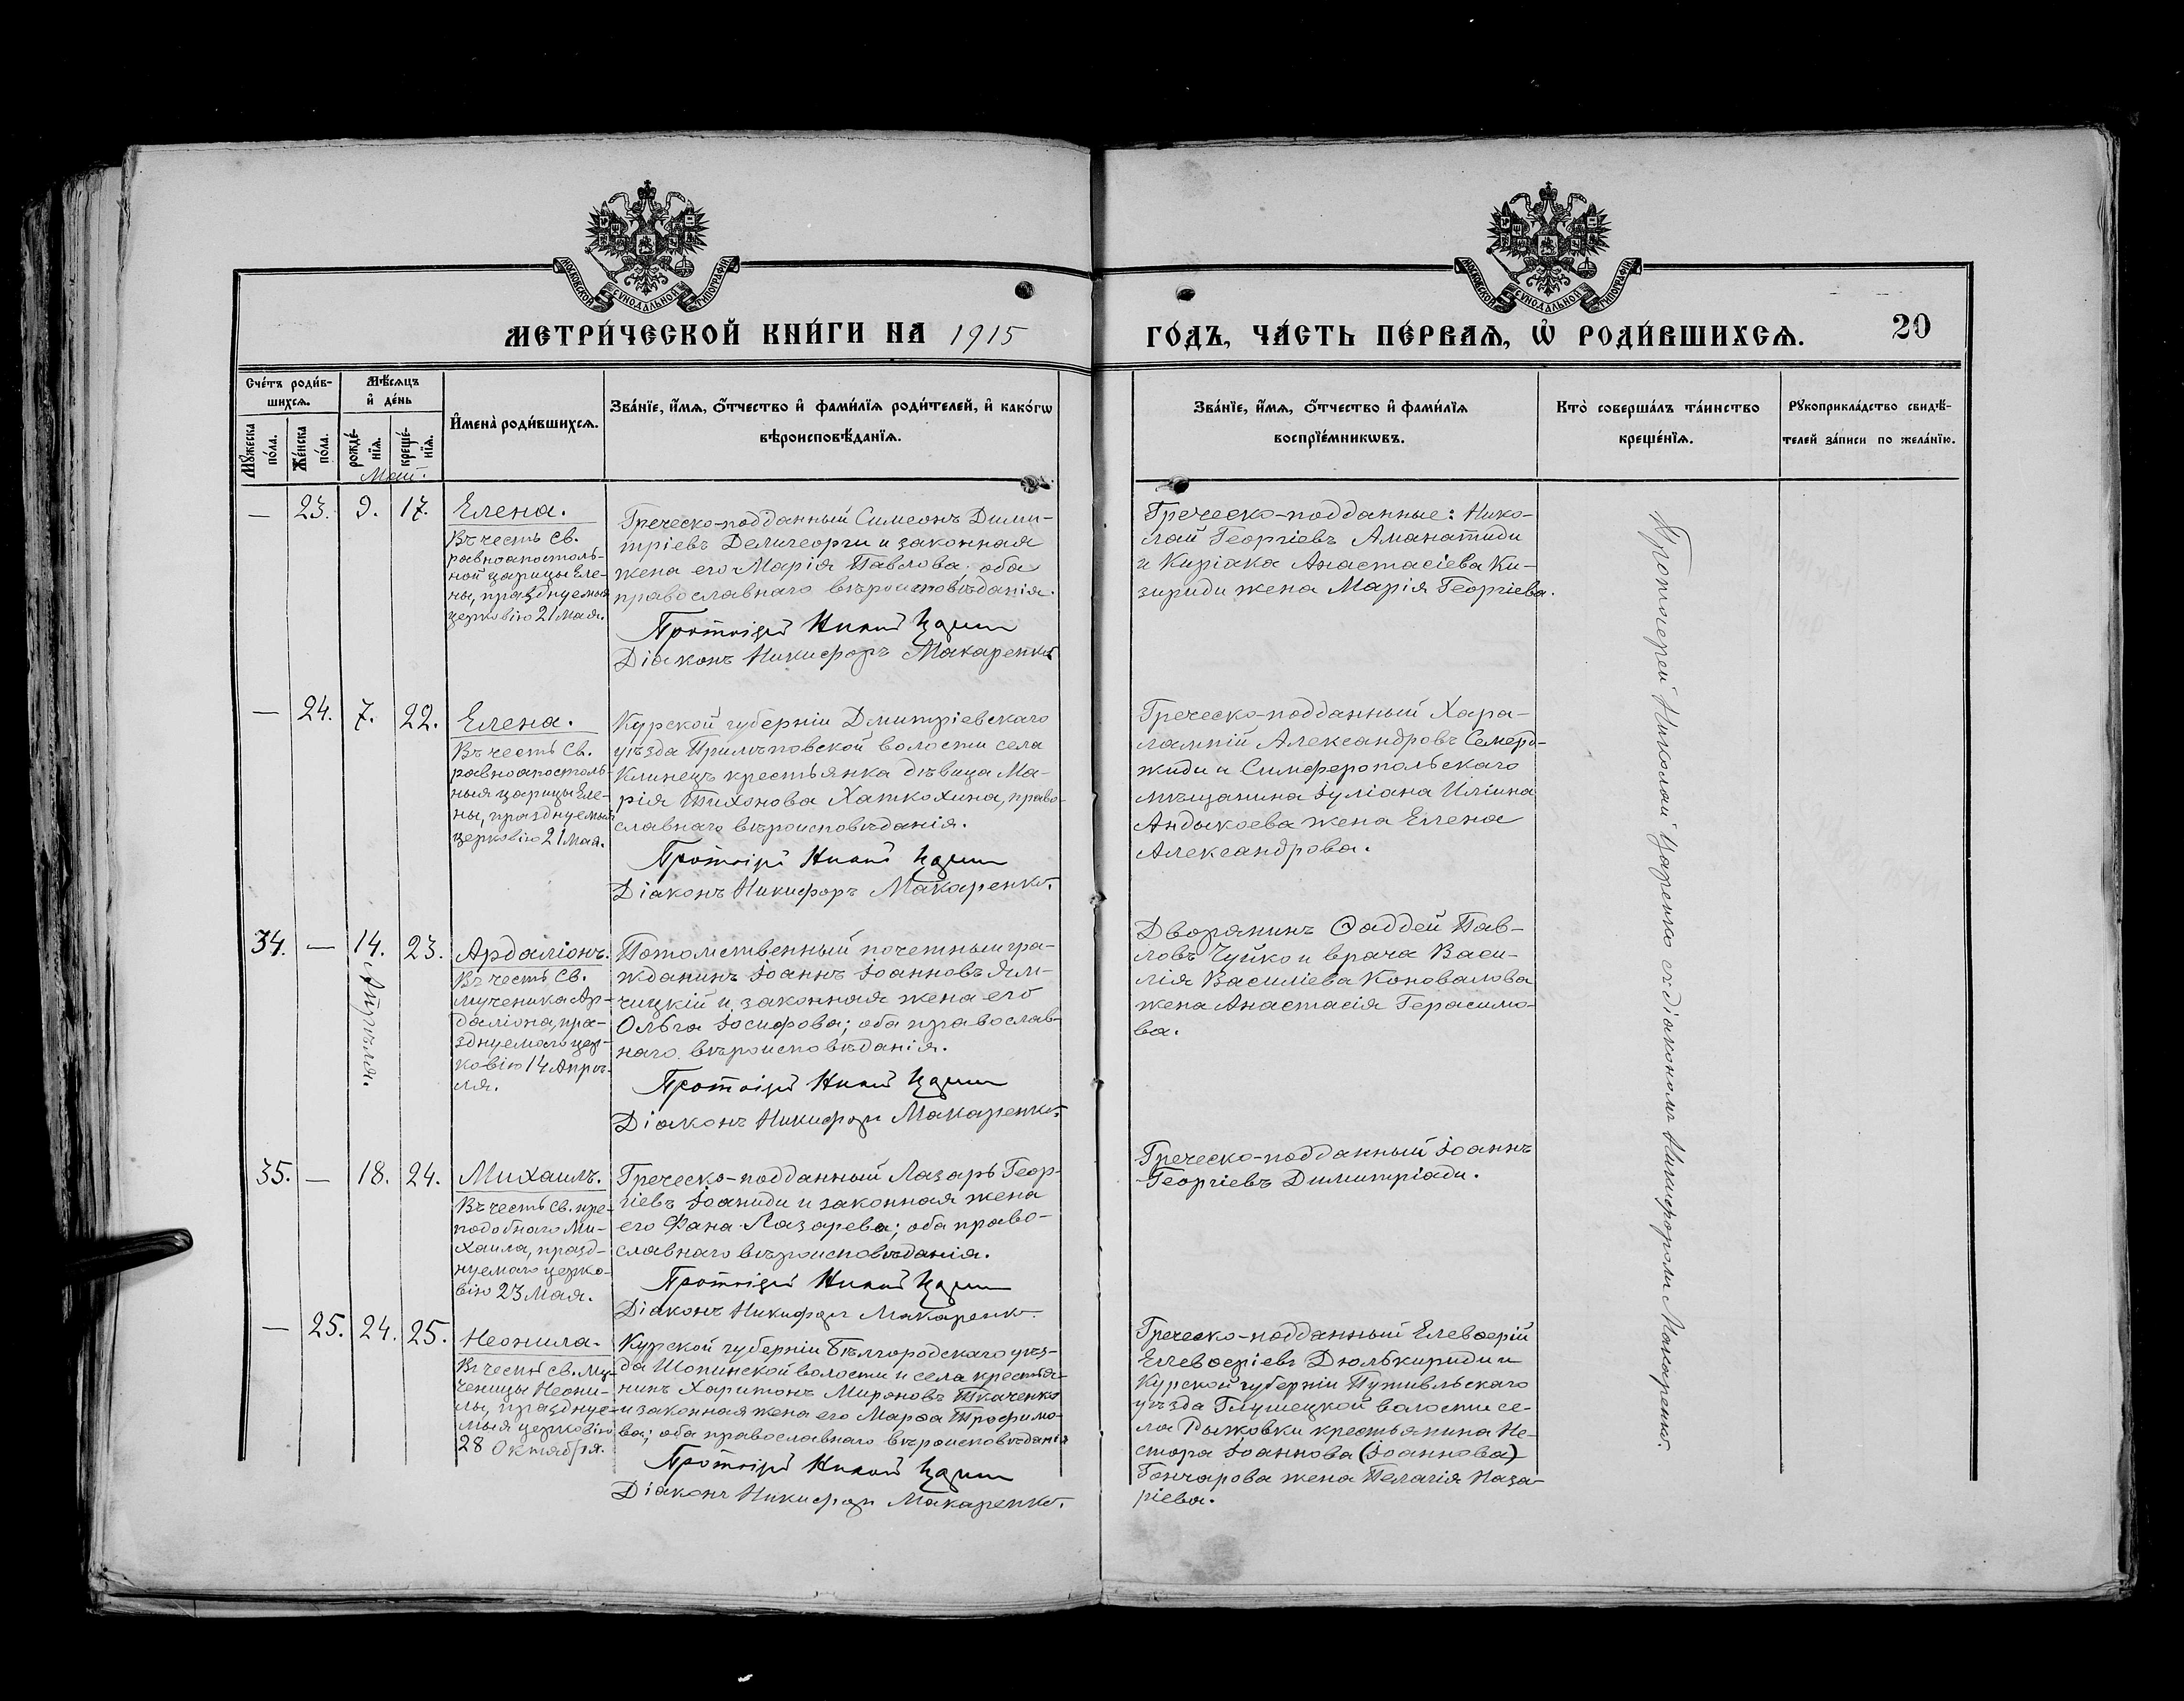 МОСКОВСКОЙ СУНОДАЛЬНОЙ ТИПОГРАФІИ
МОСКОВСКОЙ СУНОДАЛЬНОЙ ТИПОГРАФІИ
МЕТРИ́ЧЕСКОЙ КНИ́ГИ НА 1915
ГО́ДЪ, ЧА́СТЬ ПЕ́РВАѦ, Ѡ҆ РОДИ́ВШИХСѦ.
20
Сче́тъ роди́в-
шихсѧ.
Мꙋ́жеска
по́ла.
Же́нска
по́ла.
Мѣ́сѧцъ
и҆ де́нь
рожде́-
нїѧ.
креще́-
нїѧ.
И҆мена̀ роди́вшихсѧ.
Зва́нїе, и҆́мѧ, ѻ҆́тчество и҆ фами́лїѧ роди́телей, и҆ како́гѡ
вѣроисповѣ́данїѧ.
Зва́нїе, и҆́мѧ, ѻ҆́тчество и҆ фами́лїѧ
воспрїе́мникѡвъ.
Кто̀ соверша́лъ та́инство
креще́нїѧ.
Рꙋкоприкла́дство свидѣ́-
телей за́писи по жела́нїю.
Май.
— 23. 9. 17. Елена.
Въ честь Св.
равноапостоль-
ной царицы Еле-
ны, празднуемыя
церковію 21 Мая.
Греческо-подданный Симеонъ Дими-
тріевъ Делигеорги и законная
жена его Марія Павлова оба
православнаго вѣроисповѣданія.
Протоіерей
Діаконъ Никифоръ Макаренко
Греческо-подданные: Нико-
лай Георгіевъ Аманатиди
и Киріака Анастасіева Ки-
зириди жена Марія Георгіева.
— 24. 7. 22. Елена.
Въ честь Св.
равноапостоль-
ныя царицы Еле-
ны, празднуемыя
церковію 21 Мая.
Курской губерніи Дмитріевскаго
уѣзда Прилѣповской волости села
Клинецъ крестьянка дѣвица Ма-
рія Тихонова Хаткохина, право-
славнаго вѣроисповѣданія.
Протоіерей
Діаконъ Никифоръ Макаренко.
Греческо-подданный Хара-
лампій Александровъ Семерд-
жиди и Симферопольскаго
мѣщанина Іуліана Иліина
Андыкоева жена Елена
Александрова.
34. — 14. 23. Ардаліонъ.
Апрѣля.
Въ честь Св.
мученика Ар-
даліона, пра-
зднуемаго цер-
ковію 14 Апрѣ-
ля.
Потомственный почетный гра-
жданинъ Іоаннъ Іоанновъ Ям-
чицкій и законная жена его
Ольга Іосифова; оба православ-
наго вѣроисповѣданія.
Протоіерей
Діаконъ Никифоръ Макаренко.
Дворянинъ Ѳаддей Пав-
ловъ Чуйко и врача Васи-
лія Василіева Коновалова
жена Анастасія Герасимо-
ва.
35. — 18. 24. Михаилъ.
Въ честь Св. пре-
подобнаго Ми-
хаила, празд-
нуемаго церко-
вію 23 Мая.
Греческо-подданный Лазарь Геор-
гіевъ Іоаниди и законная жена
его Фана Лазарева; оба право-
славнаго вѣроисповѣданія.
Протоіерей
Діаконъ Никифоръ Макаренко.
Греческо-подданный Іоаннъ
Георгіевъ Димитріади.
— 25. 24. 25. Неонила.
Въ честь Св. му-
ченицы Неони-
лы, празднуе-
мыя церковію
28 Октября.
Курской губерніи Бѣлгородскаго уѣз-
да Шопинской волости и села крестья-
нинъ Харитонъ Мироновъ Ткаченко
и законная жена его Марѳа Трофимо-
ва; оба православнаго вѣроисповѣданія
Протоіерей
Діаконъ Никифоръ Макаренко.
Греческо-подданный Елевѳерій
Елевѳеріевъ Дюлькириди и
Курской губерніи Путивльскаго
уѣзда Глушецкой волости се-
ла Рыжовки крестьянина Не-
стора Іоаннова (Іоаннова)
Гончарова жена Пелагія Наза-
ріева.
Протоіерей Николай Царенко съ діакономъ Никифоромъ Макаренко.